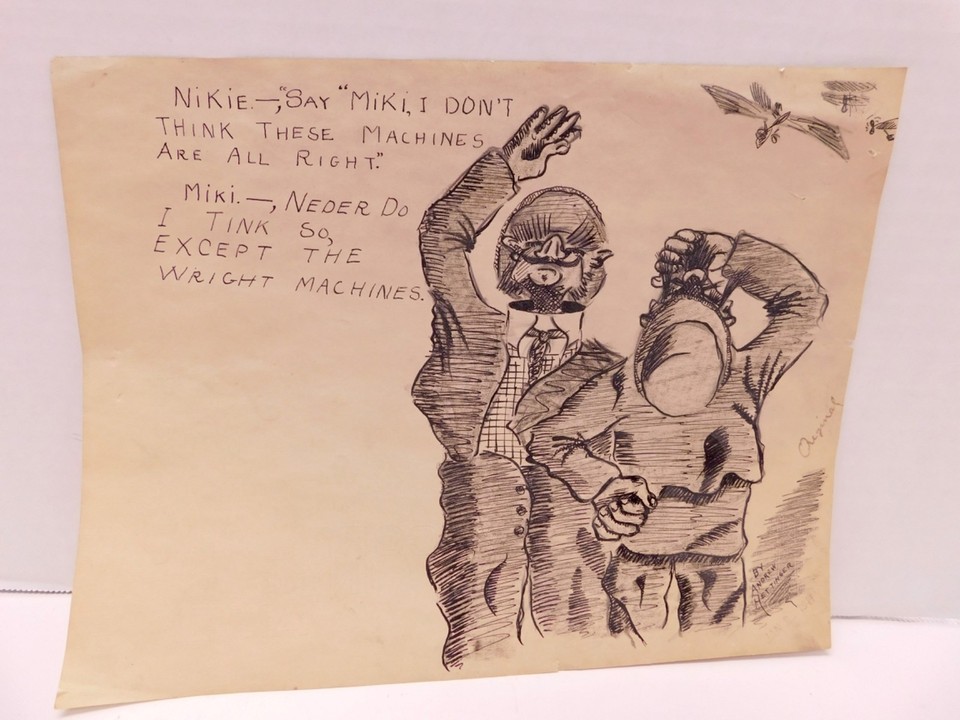 NIKIE.—,"SAY "MIKI, I DON'T
THINK THESE MACHINES
ARE ALL RIGHT."
MIKI.—, NEDER DO
I TINK SO,
EXCEPT THE
WRIGHT MACHINES.
Original
BY
ANDREW
HETTINGER